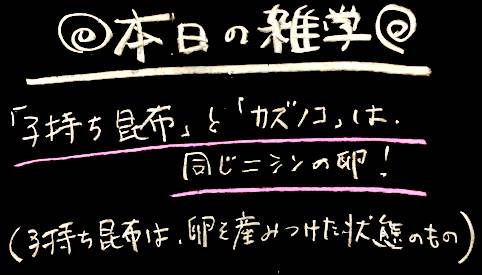 本日の雑学
「子持ち昆布」と「カズノコ」は、
同じニシンの卵!
(子持ち昆布は、卵を産みつけた状態のもの)